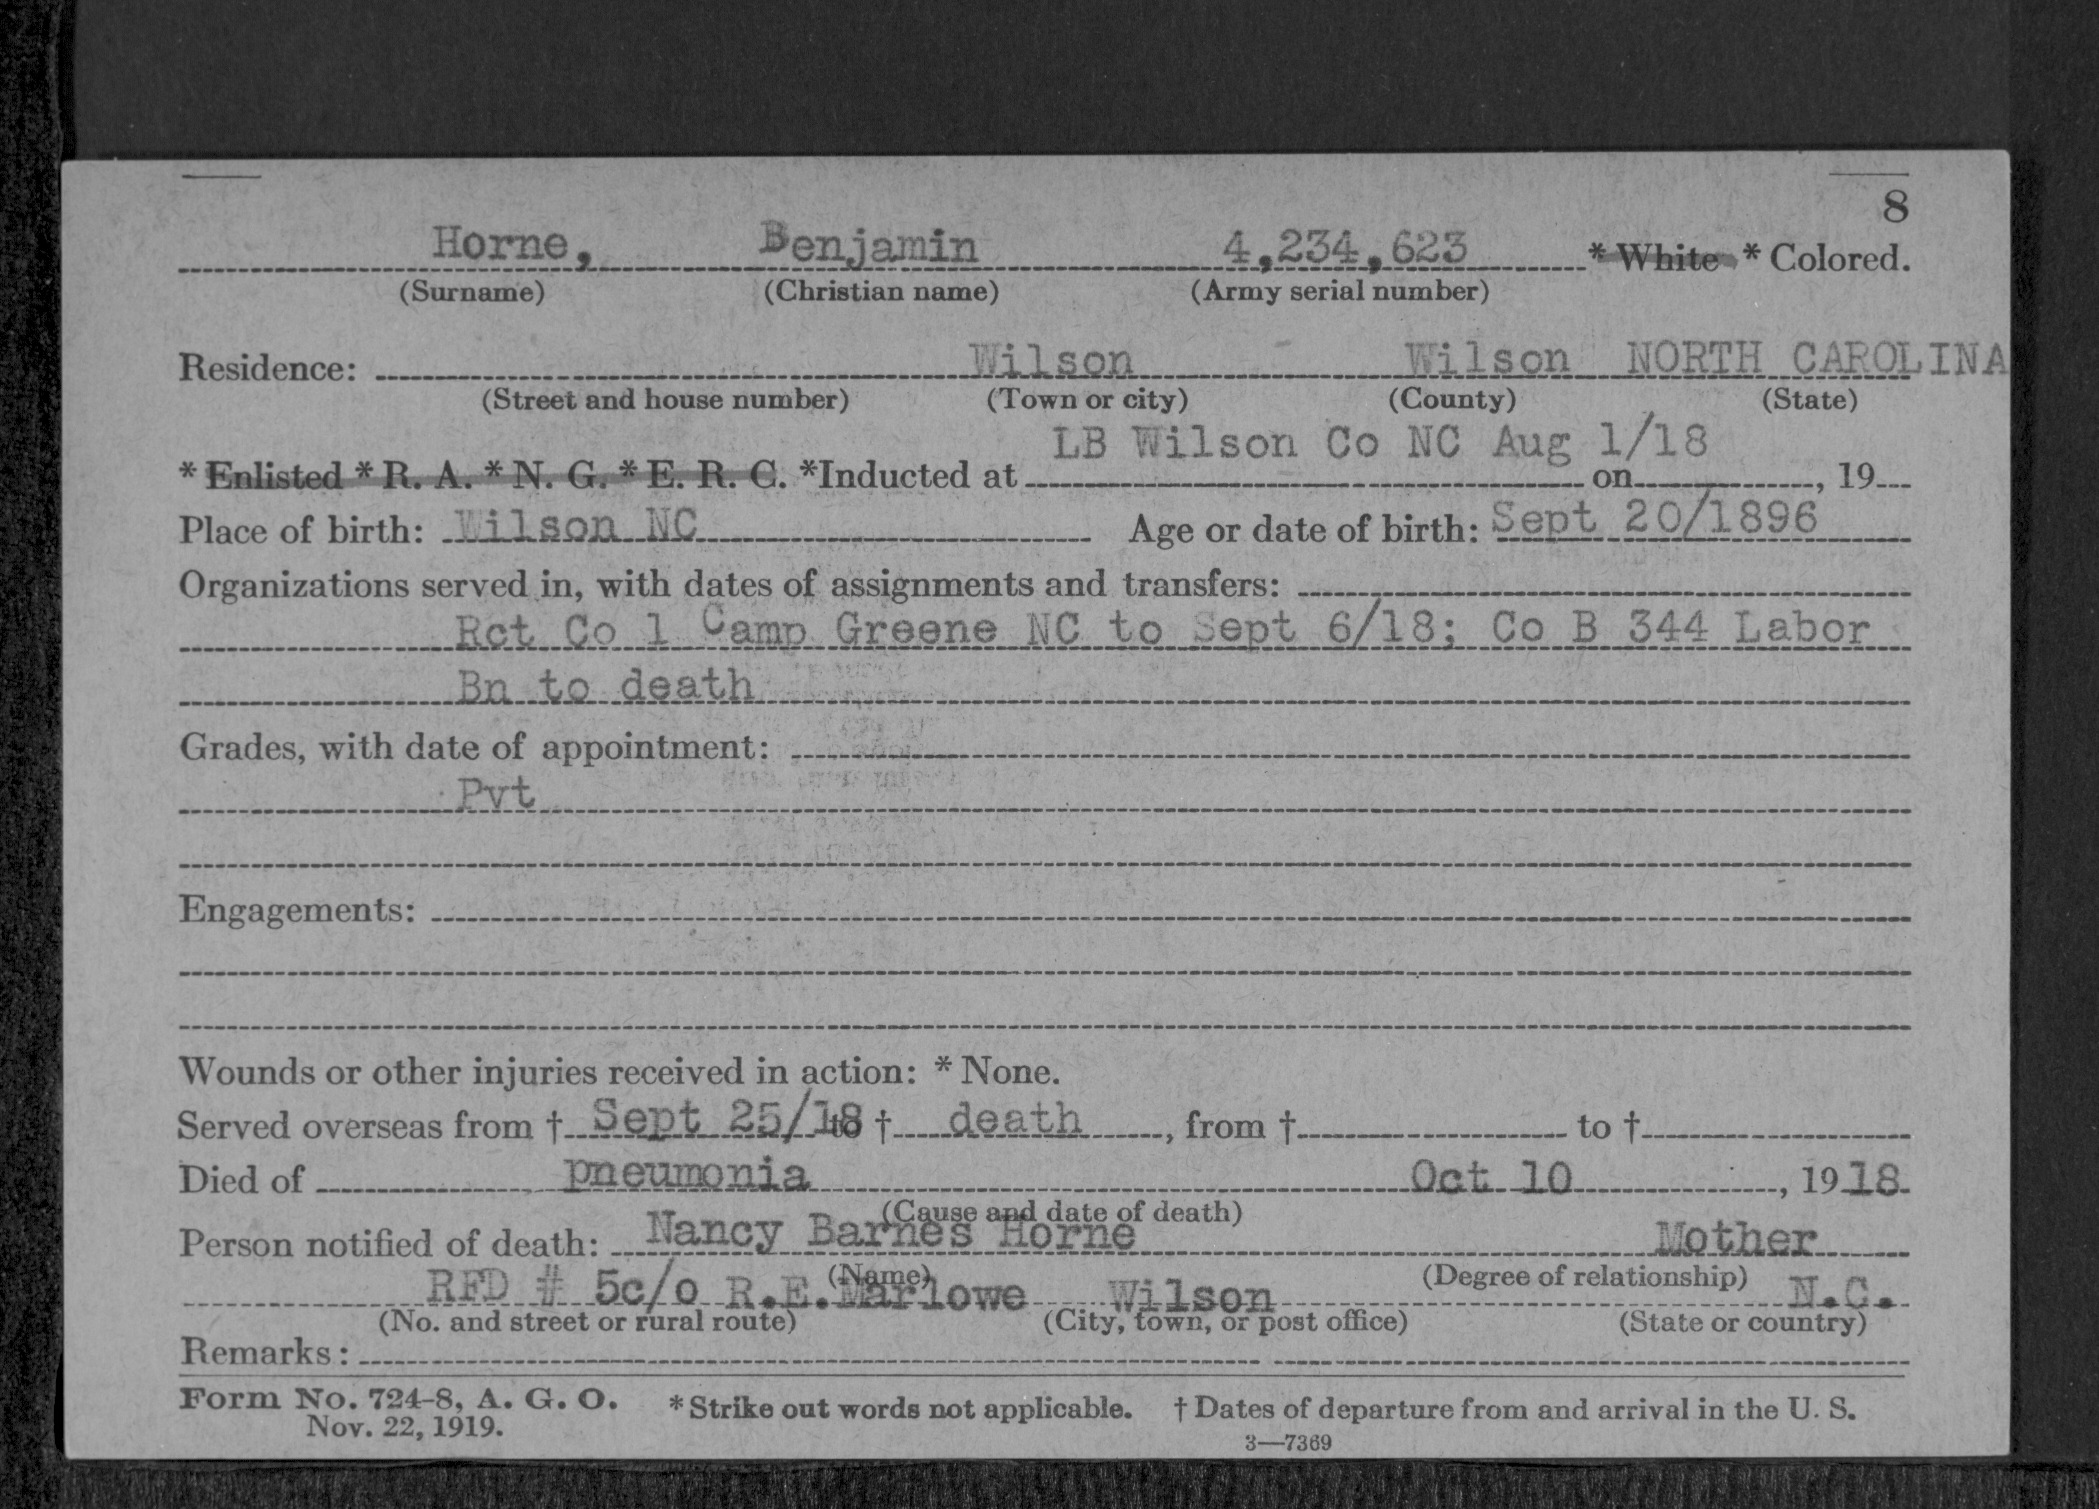 8
Horne, Benjamin 4,234,623 * White * Colored.
(Surname) (Christian name) (Army serial number)
Residence: Wilson Wilson NORTH CAROLINA
(Street and house number) (Town or city) (County) (State)
LB Wilson Co NC Aug 1/18
* Enlisted * R. A. * N. G. * E. R. C. *Inducted at on , 19
Place of birth: Wilson NC Age or date of birth: Sept 20/1896
Organizations served in, with dates of assignments and transfers:
Rct Co 1 Camp Greene NC to Sept 6/18; Co B 344 Labor
Bn to death
Grades, with date of appointment:
Pvt
Engagements:
Wounds or other injuries received in action: * None.
Served overseas from † Sept 25/18 to † death , from † to †
Died of pneumonia Oct 10 , 1918
(Cause and date of death)
Person notified of death: Nancy Barnes Horne Mother
(Name) (Degree of relationship)
RFD # 5c/o R.E.Marlowe Wilson N.C.
(No. and street or rural route) (City, town, or post office) (State or country)
Remarks:
Form No. 724-8, A. G. O. * Strike out words not applicable. † Dates of departure from and arrival in the U. S.
Nov. 22, 1919.
3—7369